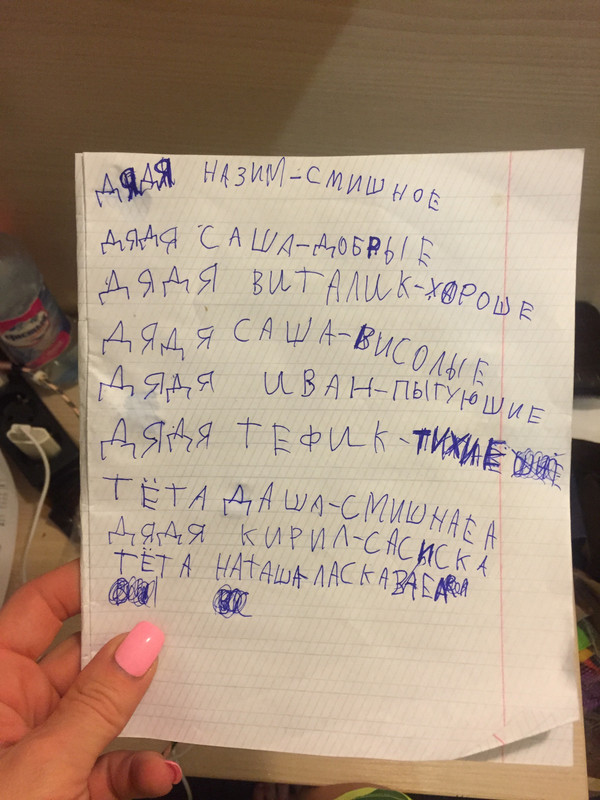 ДЯДЯ НАЗИМ-СМИШНОЕ
ДЯДЯ САША-ДОБРЫЕ
ДЯДЯ ВИТАЛИК-ХОРОШЕ
ДЯДЯ САША-ВИСОЛЫЕ
ДЯДЯ ИВАН-ПЫГУЮШИЕ
ДЯДЯ ТЕФИК-ТИХИЕ
ТЁТА ДАША-СМИШНАЕА
ДЯДЯ КИРИЛ-САСИСКА
ТЁТА НАТАША-ЛАСКАВАЕА